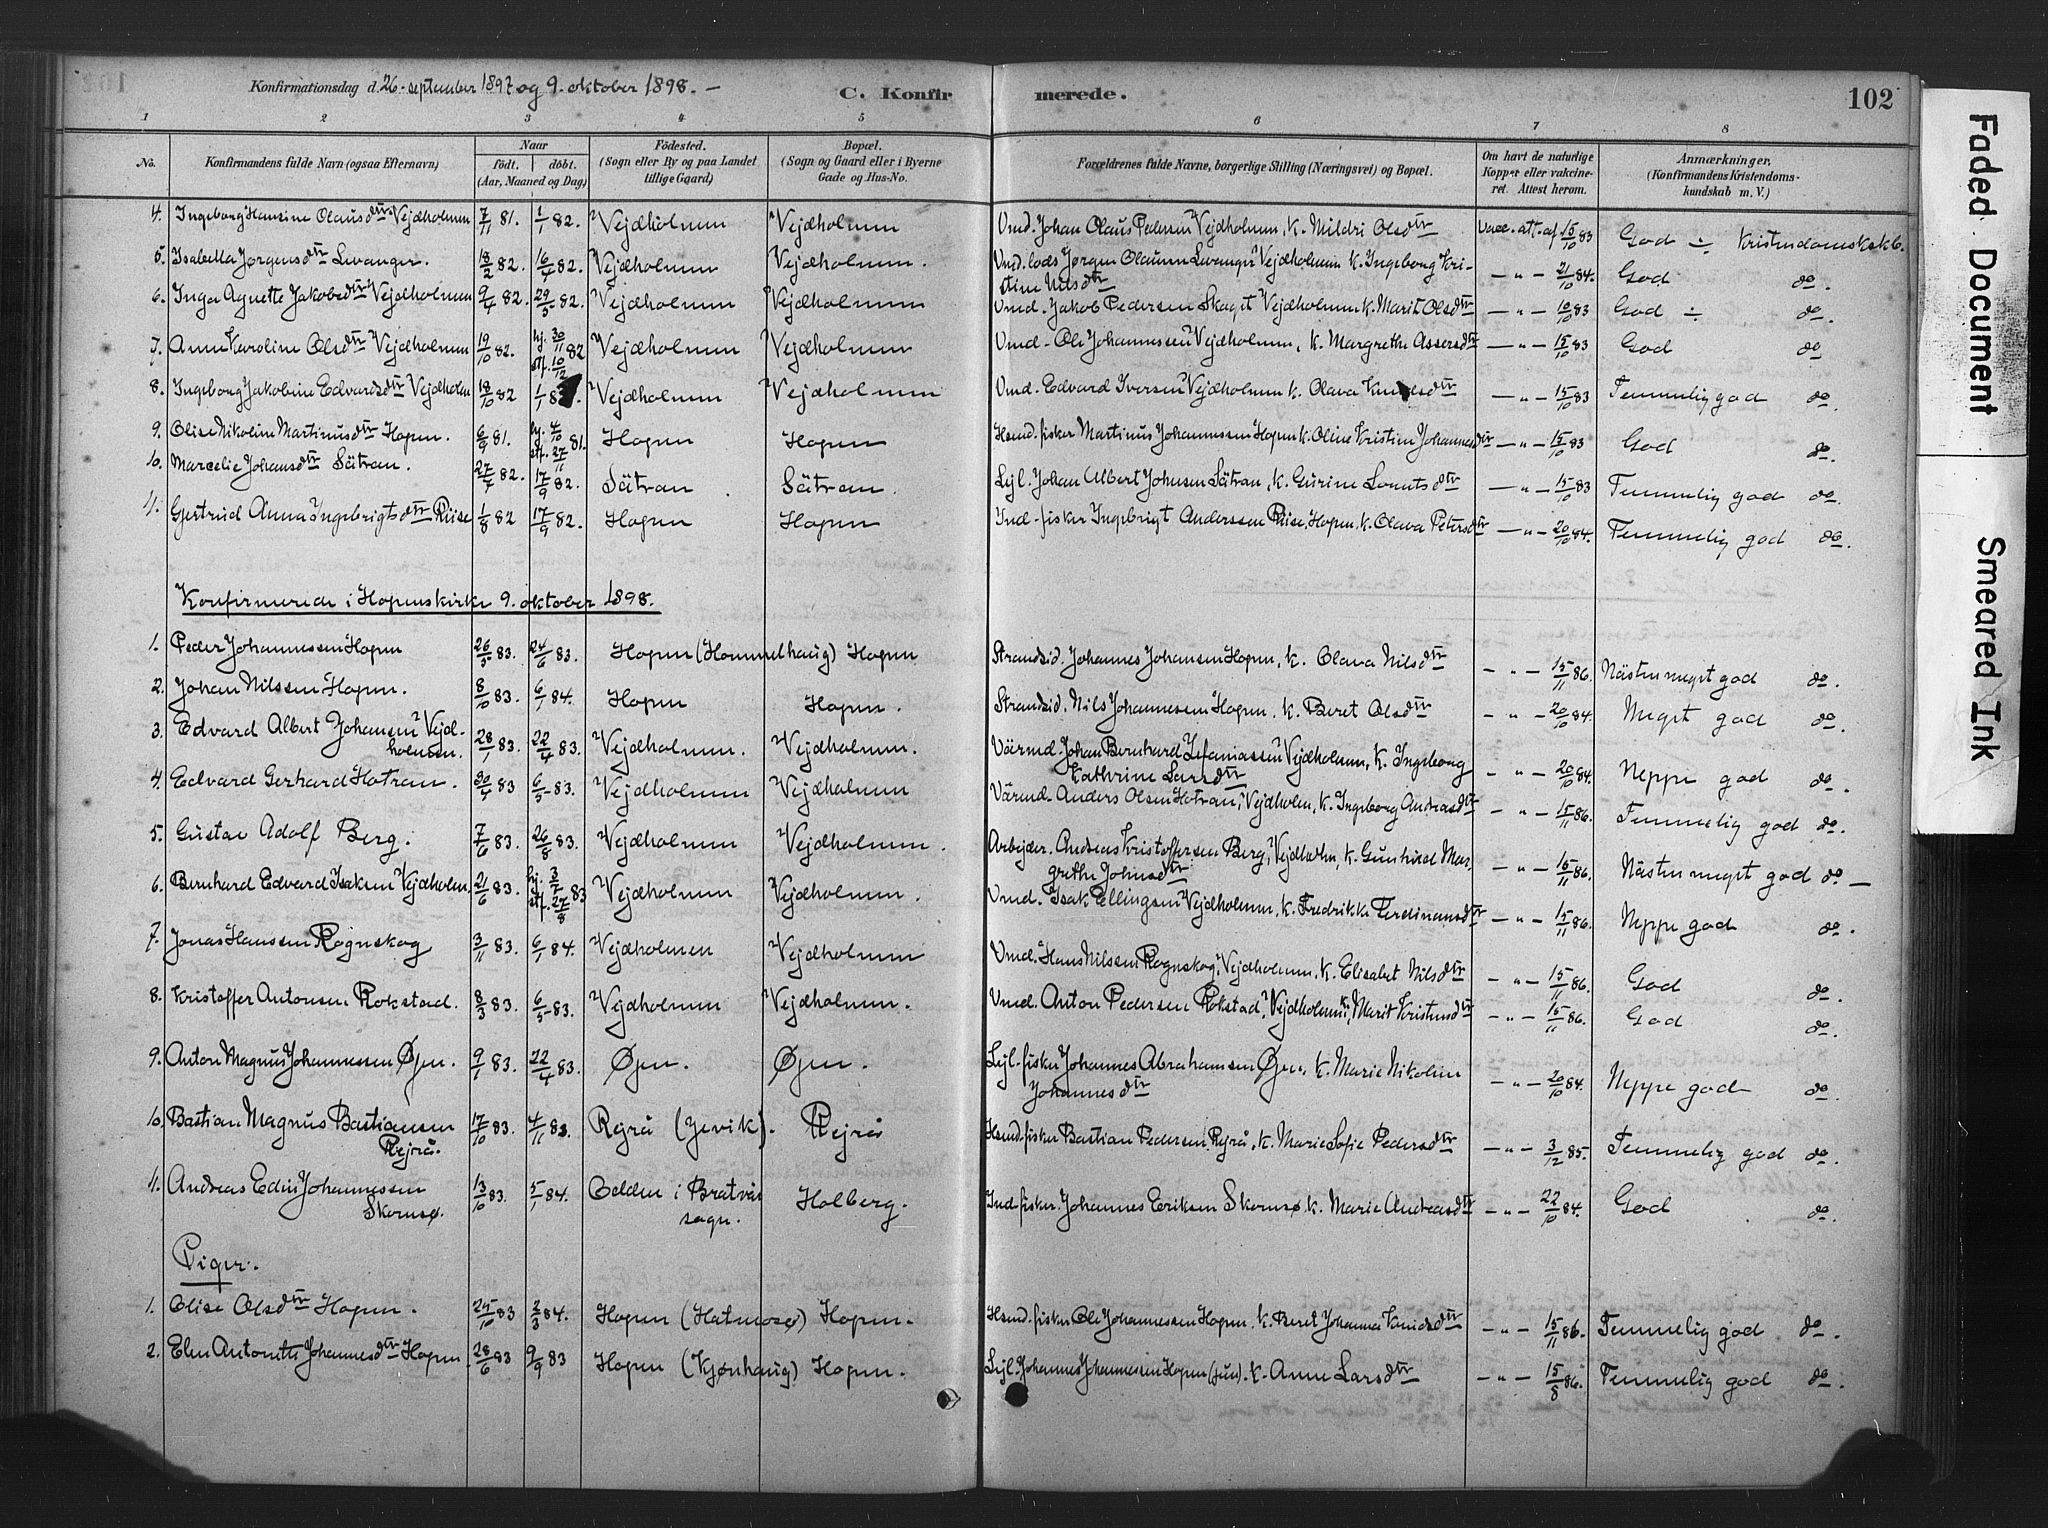 Konfirmationsdag d. 26. september 1897 og 9. oktober 1898. –
C. Konfirmerede.
102
1 2 3 4 5 6 7 8
No.
Konfirmandens fulde Navn (ogsaa Efternavn)
Naar
født. døbt.
(Aar, Maaned og Dag)
Fødested.
(Sogn eller By og paa Landet
tillige Gaard)
Bopæl.
(Sogn og Gaard eller i Byerne
Gade og Hus-No.
Forældrenes fulde Navne, borgerlige Stilling (Næringsvei) og Bopæl.
Om havt de naturlige
Kopper eller vaccine-
ret. Attest herom.
Anmærkninger,
(Konfirmandens Kristendoms-
kundskab m. V.)
4. Ingeborg Hansine Olausdtr Vejdholmen 7/11 81. 1/1 82. Vejdholmen Vejdholmen Vmd. Johan Olaus Pedersen Vejdholmen, k. Mildri Olsdtr Vacc. att. af 15/10 83 God ÷ Kristendomskskb.
5. Isabella Jørgensdtr Levanger. 18/2 82. 16/4 82. Vejdholmen Vejdholmen. Vmd. lods Jørgen Olausen Levanger Vejdholmen k. Ingeborg Kri-
stine Nilsdtr — " — 21/10 84. God do.
6. Inga Agnette Jakobsdtr Vejdholmen 9/4 82. 29/5 82. Vejdholmen Vejdholmen Vmd. Jakob Pedersen Skaget Vejdholmen k. Marit Olsdtr — " — 10/10 83 God ÷ do.
7. Anne Karoline Olsdtr Vejdholmen 19/10 82. hj. 30/11 stf. 10/12 82 Vejdholmen Vejdholmen Vmd. Ole Johannessen Vejdholmen, k. Margrethe Assersdtr — " — 15/10 83 God do
8. Ingeborg Jakobine Edvardsdtr Vejdholm 18/10 82 1/1 83. Vejdholmen Vejdholmen Vmd. Edvard Iversen Vejdholmen k. Olava Knudsdtr — " — 15/10 83 Temmelig god do.
9. Olise Nikoline Martinusdtr Hopen. 6/9 81. hj. 4/10 stf. 27/11 81. Hopen Hopen Hsmd. fisker Martinus Johannessen Hopen k. Oline Kristine Johannesdtr — " — 15/10 83 God do.
10. Marcelie Johansdtr Sätran. 27/7 82. 17/9 82. Sätran. Sätran. Lejl. Johan Albert Johnsen Sätran, k. Gurine Lorntsdtr — " — 15/10 83 Temmelig god do.
11. Gjertrud Anna Ingebrigtsdtr Riise 1/8 82 17/9 82. Hopen Hopen Ind-fisker Ingebrigt Anderssen Riise, Hopen, k. Olava Petersdtr — " — 20/10 84. Temmelig god do.
Konfirmerede i Hopens kirke 9. oktober 1898.
1. Peder Johannessen Hopen 26/5 83. 24/6 83. Hopen (Hommelhaug) Hopen Strandsid. Johannes Johansen Hopen, k. Olava Nilsdtr – " – 15/11 86. Nästen meget god do.
2. Johan Nilssen Hopen. 8/10 83. 6/1 84. Hopen Hopen. Strandsid. Nils Johannesen Hopen, k. Beret Olsdtr – " – 20/10 84. Meget god do.
3. Edvard Albert Johansen Vejd-
holmen. 28/1 83. 22/4 83. Vejdholmen. Vejdholmen. Värmd. Johan Bernhard Zefaniassen Vejdholmen, k. Ingeborg
Kathrine Larsdtr – " – 20/10 84. Neppe god do.
4. Edvard Gerhard Hotran. 30/4 83 6/5 83. Vejdholmen Vejdholmen Värmd. Anders Olsen Hotran, Vejdholm, k. Ingeborg Andreasdtr – " – 15/11 86. Temmelig god do.
5. Gustav Adolf Berg. 7/6 83. 26/8 83. Vejdholmen Vejdholmen. Arbejder. Andreas Kristoffersen Berg, Vejdholm, k. Gunhild Mar-
grethe Johnsdtr – " – 15/11 86. Nästen meget god do –
6. Bernhard Edvard Isaksen Vejdholm. 21/6 83. hj. 3/7 stf. 27/8 83 Vejdholmen Vejdholmen. Vmd. Isak Ellingsen Vejdholmen, k. Fredrikke Ferdinansdtr – " – 15/11 86. Neppe god do.
7. Jonas Hanssen Rognskog 3/11 83. 6/1 84. Vejdholmen Vejdholmen Vmd. Hans Nilssen Rognskog, Vejdholmen, k. Elisabet Nilsdtr – " – 15/11 86. God do.
8. Kristoffer Antonsen Rokstad. 8/3 83. 6/5 83. Vejdholmen Vejdholmen. Vmd. Anton Pedersen Rokstad, Vejdholmen, k. Marit Kristensdtr – " – 15/11 86. God do.
9. Anton Magnus Johannessen Øjen. 9/1 83. 22/4 83. Øjen. Øjen. Lejl-fisker Johannes Abrahamsen Øjen, k. Marie Nikoline
Johannesdtr – " – 20/10 84. Neppe god do.
10. Bastian Magnus Bastiansen
Rejrå. 17/10 83. 4/11 83. Rejrå (Jevik). Rejrå Hsmd-fisker Bastian Pedersen Rejrå, k. Marie Sofie Pedersdtr – " – 3/12 85. Temmelig god do.
11. Andreas Edin Johannessen
Skomsø. 13/10 83. 5/1 84. Odden i Bratvär
sogn. Holberg. Ind-fisker Johannes Eriksen Skomsø k. Marie Andreasdtr – " – 22/10 84. God do.
Piger.
1. Olise Olsdtr Hopen. 25/10 83 2/3 84. Hopen (Hatmosø) Hopen. Hsmd. fisker Ole Johannessen Hopen, k. Beret Johanna Knudsdtr – " – 15/11 86. Temmelig god do.
2. Elen Antonette Johannesdtr Hopen 28/6 83 9/9 83 Hopen (Kjønhaug) Hopen. Lejl. Johannes Johannessen Hopen (jun). k. Anne Larsdtr – " – 15/8 86. Temmelig god do.
Faded Document
Smeared Ink